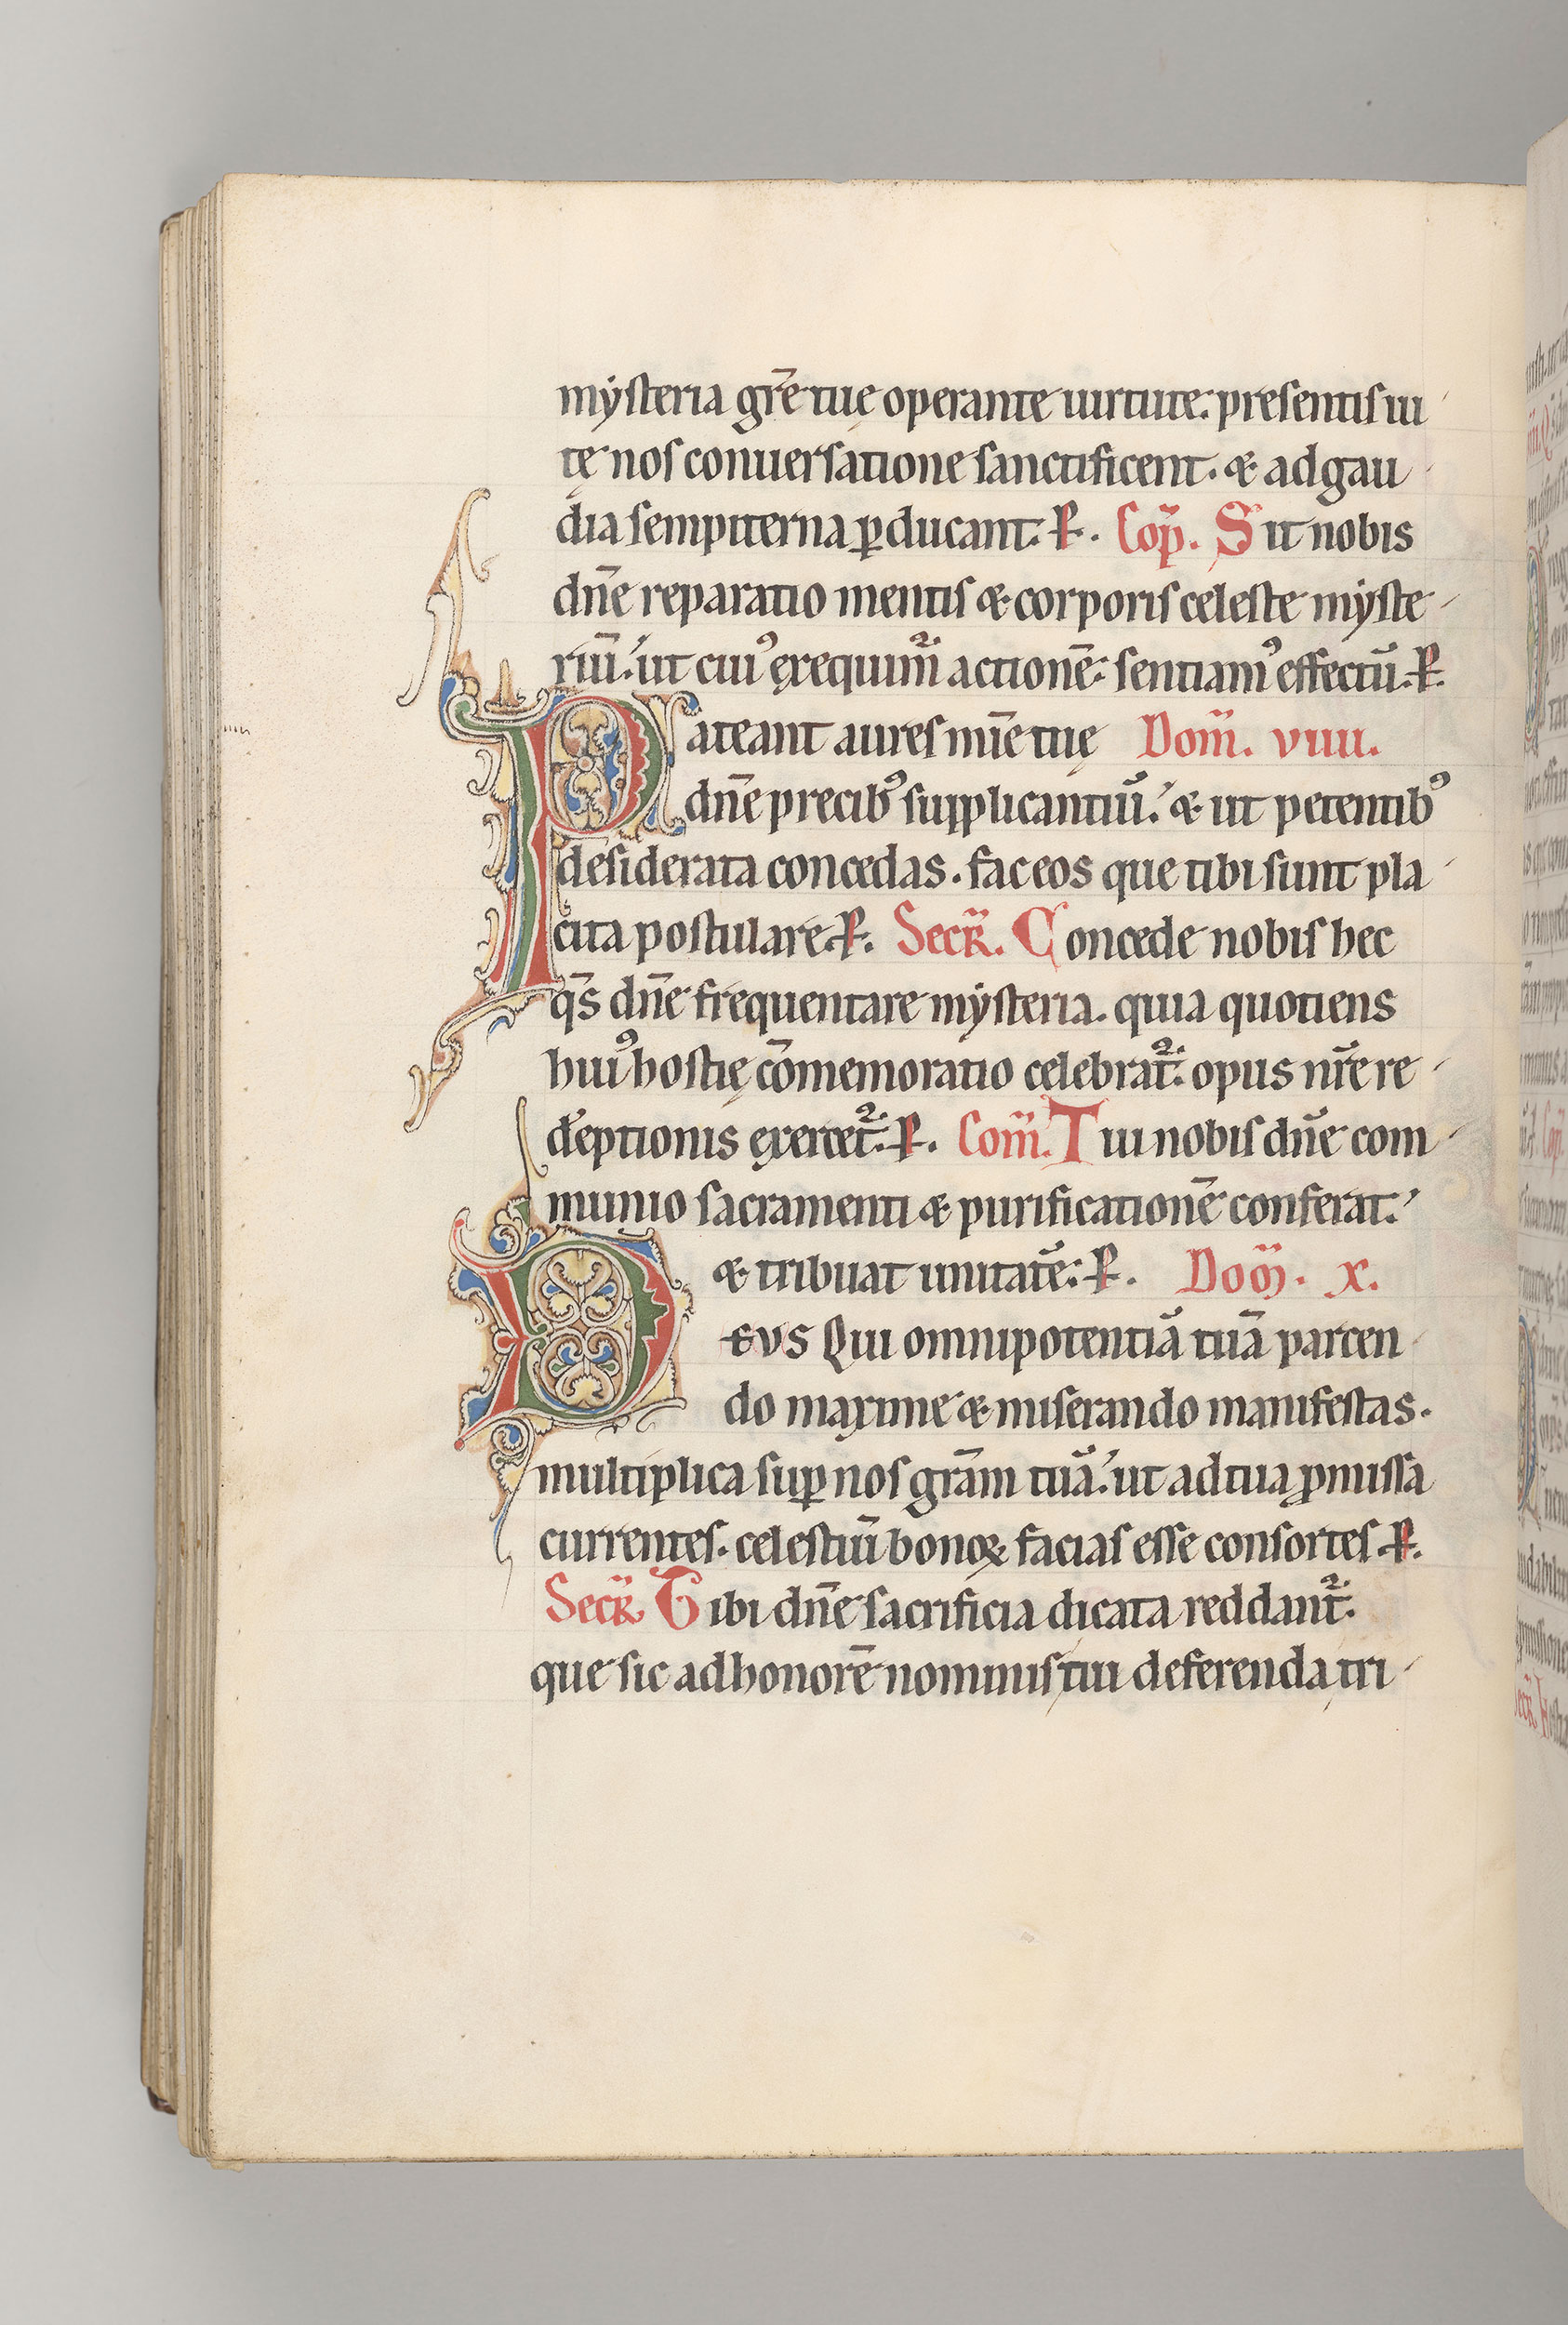 mysteria gr̄e tuę operante uirtute: presentis ui
tę nos conuersatione sanctificent. & ad gau
dia sempiterna ꝑducant. P. Cōp. Sit nobis
dn̄e reparatio mentis & corporis celeste myste
riū: ut cuiꝰ exequimur actionē: sentiamꝰ effectū. P.
Pateant aures mīe tuę Dom̄. viiii.
dn̄e precibꝰ supplicantiū: & ut petentibꝰ
desiderata concedas. fac eos que tibi sunt pla
cita postulare. P. Secr̄. Concede nobis hec
qs̄ dn̄e frequentare mysteria. quia quotiens
huiꝰ hostię cōmemoratio celebrat᷑: opus nr̄e re
d̄eptionis exercet᷑: P. Com̄. Tui nobis dn̄e com
munio sacramenti & purificationē conferat:
& tribuat unitatē: P. Dom̄. x.
DEVS Qui omnipotentiā tuā parcen
do maxime & miserando manifestas.
multiplica suꝑ nos grām tuā: ut ad tua ꝓmissa
currentes. celestiū bonoꝝ facias esse consortes. P.
Secr̄ Tibi dn̄e sacrificia dicata reddant᷑.
que sic ad honorē nominis tui deferenda tri